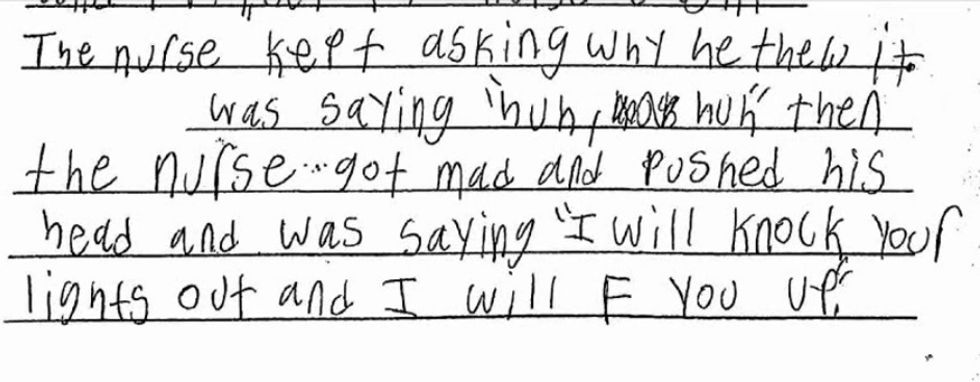 The nurse kept asking why he thew it.
was saying "huh, huh" then
the nurse got mad and pushed his
head and was saying "I will knock your
lights out and I will F you up."